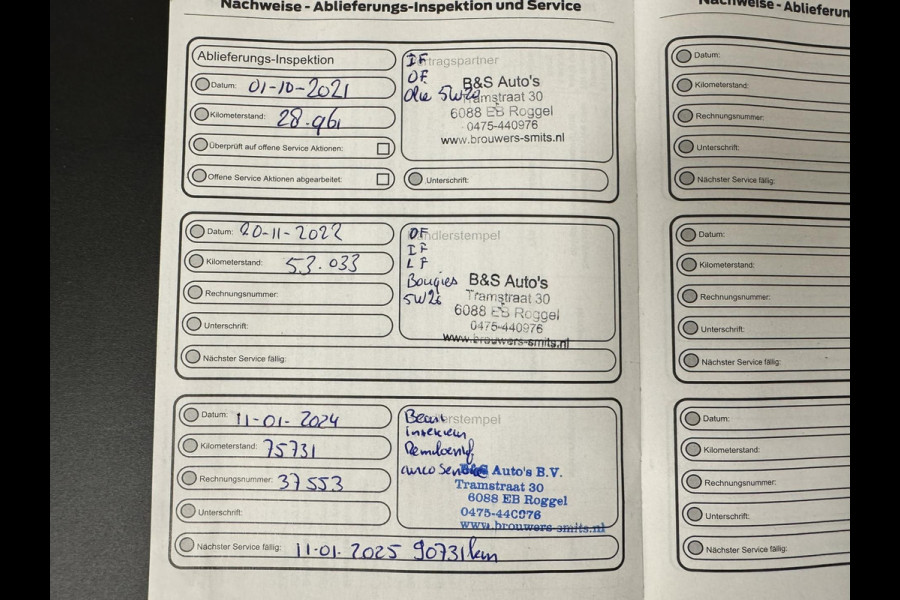 Nachweise - Ablieferungs-Inspektion und Service
Ablieferungs-Inspektion
Datum: 01-10-2021
Kilometerstand: 28.961
Überprüft auf offene Service Aktionen:
Offene Service Aktionen abgearbeitet:
IF
OF
Olie 5W20
B&S Auto's
Tramstraat 30
6088 EB Roggel
0475-440976
www.brouwers-smits.nl
Unterschrift:
Datum: 20-11-2022
Kilometerstand: 53.033
Rechnungsnummer:
Unterschrift:
Nächster Service fällig:
OF
IF
LF
Bougies
B&S Auto's
Tramstraat 30
6088 EB Roggel
0475-440976
www.brouwers-smits.nl
Datum: 11-01-2024
Kilometerstand: 75731
Rechnungsnummer: 37553
Unterschrift:
Nächster Service fällig: 11-01-2025 90731km
B&S Auto's B.V.
Tramstraat 30
6088 EB Roggel
0475-440976
www.brouwers-smits.nl
Nachweise - Ablieferun
Datum:
Kilometerstand:
Rechnungsnummer:
Unterschrift:
Nächster Service fällig:
Datum:
Kilometerstand:
Rechnungsnummer:
Unterschrift:
Nächster Service fällig:
Datum:
Kilometerstand:
Rechnungsnummer:
Unterschrift:
Nächster Service fällig: